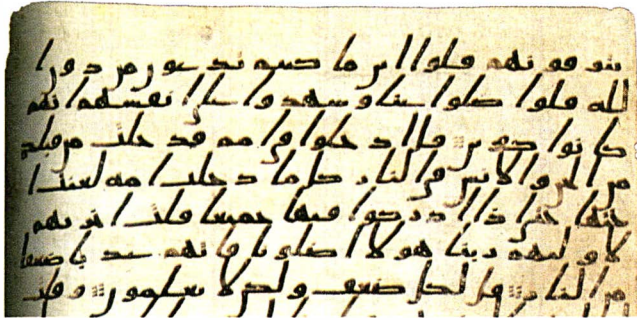 يتوفونهم قلوا اين ما كنتم تدعون من دون ا
لله قلوا ضلوا عنا وشهدوا على انفسهم انهم
كانوا كفرين قل ادخلوا في امم قد خلت من قبلكم
من الجن والانس في النار كلما دخلت امه لعنت ا
ختها حتى اذا ادركوا فيها جميعا قلت اخريهم
لاوليهم ربنا هولا اضلونا فاتهم عذبا ضعفا
من النار قل لكل ضعف ولكن لا تعلمون وقلت